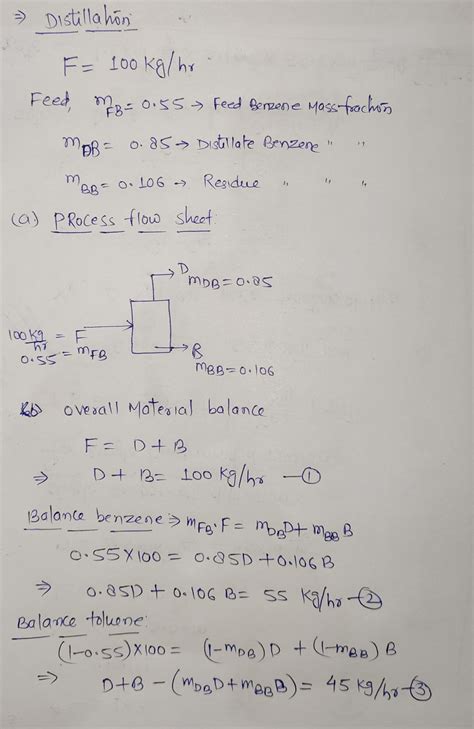 ⇒ Distillation
F = 100 kg/hr
Feed, mFB = 0.55 → Feed Benzene Mass fraction
mDB = 0.85 → Distillate Benzene " "
mBB = 0.106 → Residue " " "
(a) Process flow sheet
D
mDB = 0.85
100 kg/hr = F
0.55 = mFB
B
mBB = 0.106
(b) overall Material balance
F = D + B
⇒ D + B = 100 kg/hr —①
Balance benzene ⇒ mFB·F = mDB D + mBB B
0.55 × 100 = 0.85D + 0.106 B
⇒ 0.85D + 0.106 B = 55 kg/hr —②
Balance toluene:
(1-0.55)×100 = (1-mDB) D + (1-mBB) B
⇒ D+B - (mDB D + mBB B) = 45 kg/hr —③